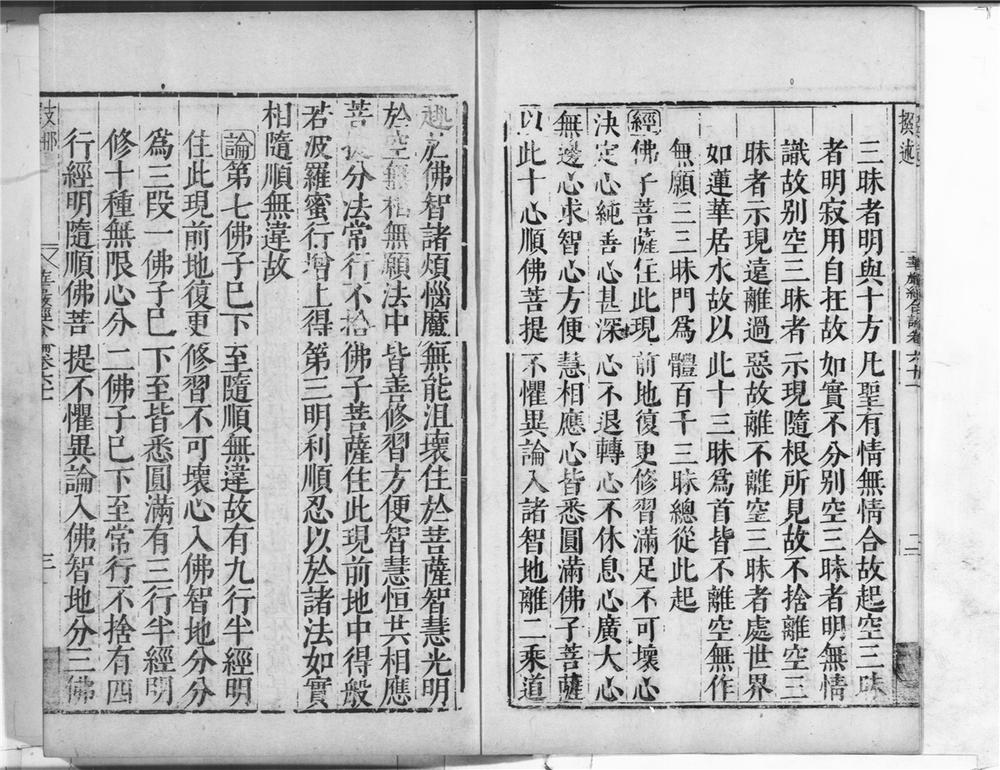 華嚴經合論卷六十一
二
三昧者明與十方凡聖有情無情合故起空三昧
者明寂用自在故如實不分别空三昧者明無情
識故别空三昧者示現隨根所見故不捨離空三
昧者示現遠離過惡故離不離空三昧者處世界
如蓮華居水故以此十三昧爲首皆不離空無作
無願三三昧門爲體百千三昧總從此起
經佛子菩薩住此現前地復更修習滿足不可壞心
決定心純善心甚深心不退轉心不休息心廣大心
無邊心求智心方便慧相應心皆悉圓滿佛子菩薩
以此十心順佛菩提不懼異論入諸智地離二乘道
趣於佛智諸煩惱魔無能沮壞住於菩薩智慧光明
於空無相無願法中皆善修習方便智慧恒共相應
菩提分法常行不捨佛子菩薩住此現前地中得般
若波羅蜜行增上得第三明利順忍以於諸法如實
相隨順無違故
論第七佛子已下至隨順無違故有九行半經明
住此現前地復更修習不可壞心入佛智地分分
爲三段一佛子已下至皆悉圓滿有三行半經明
修十種無限心分二佛子已下至常行不捨有四
行經明隨順佛菩提不懼異論入佛智地分三佛
三